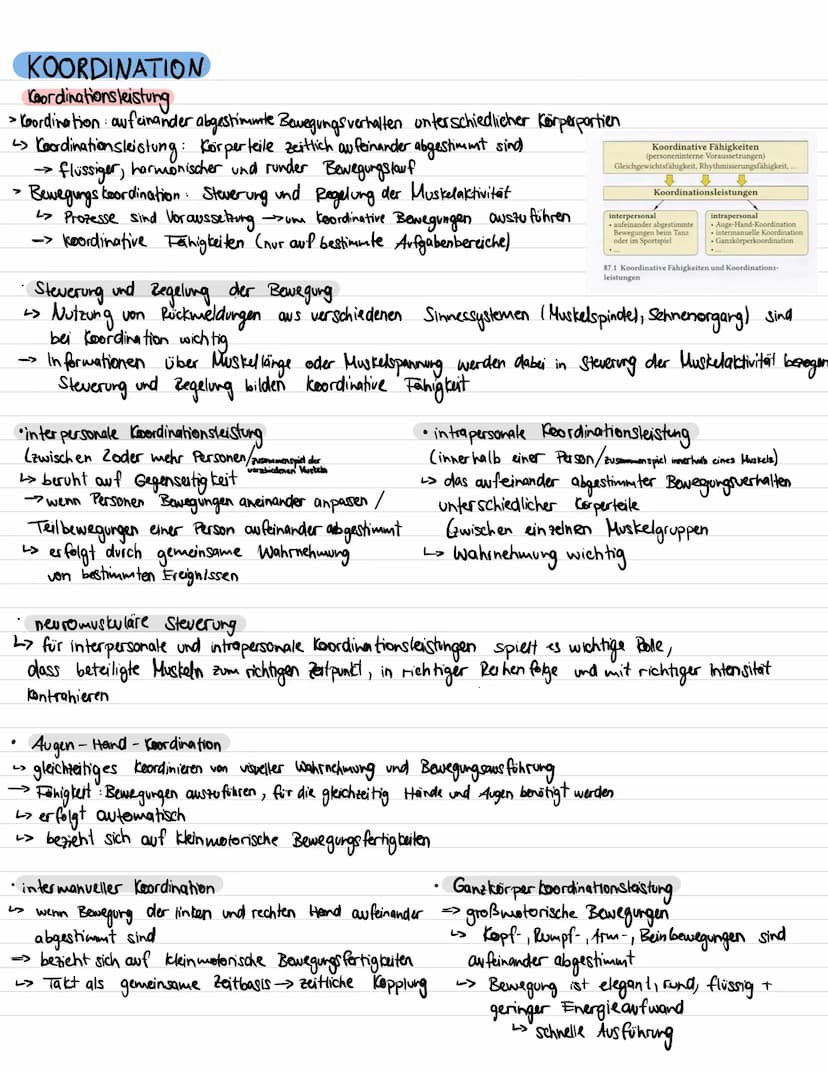 KOORDINATION
Koordinationsleistung
> Koordination : aufeinander abgestimmte Bewegungsverhalten unterschiedlicher Körperpartien
↳ Koordinationsleistung : Körperteile zeitlich aufeinander abgestimmt sind
→ flüssiger, harmonischer und runder Bewegungslauf
> Bewegungskoordination : Steuerung und Regelung der Muskelaktivität
↳ Prozesse sind Voraussetzung → um koordinative Bewegungen auszuführen
→ koordinative Fähigkeiten (nur auf bestimmte Aufgabenbereiche)
Koordinative Fähigkeiten
(personeninterne Voraussetzungen)
Gleichgewichtsfähigkeit, Rhythmisierungsfähigkeit, ...
Koordinationsleistungen
interpersonal
• aufeinander abgestimmte
Bewegungen beim Tanz
oder im Sportspiel
• ...
intrapersonal
• Auge-Hand-Koordination
• intermanuelle Koordination
• Ganzkörperkoordination
• ...
87.1 Koordinative Fähigkeiten und Koordinations-
leistungen
· Steuerung und Regelung der Bewegung
↳ Nutzung von Rückmeldungen aus verschiedenen Sinnessystemen (Muskelspindel, Sehnenorgang) sind
bei Koordination wichtig
→ Informationen über Muskellänge oder Muskelspannung werden dabei in Steuerung der Muskelaktivität bezogen
Steuerung und Regelung bilden koordinative Fähigkeit
• interpersonale Koordinationsleistung
(zwischen 2 oder mehr Personen/zusammenspiel der
verschiedenen Muskeln
↳ beruht auf Gegenseitigkeit
→ wenn Personen Bewegungen aneinander anpassen /
Teilbewegungen einer Person aufeinander abgestimmt
↳ erfolgt durch gemeinsame Wahrnehmung
von bestimmten Ereignissen
• intrapersonale Koordinationsleistung
(innerhalb einer Person/zusammenspiel innerhalb eines Muskels)
↳ das aufeinander abgestimmter Bewegungsverhalten
unterschiedlicher Körperteile
(zwischen einzelnen Muskelgruppen
↳ Wahrnehmung wichtig
· neuromuskuläre Steuerung
↳ für interpersonale und intrapersonale Koordinationsleistungen spielt es wichtige Rolle,
dass beteiligte Muskeln zum richtigen Zeitpunkt, in richtiger Reihenfolge und mit richtiger Intensität
kontrahieren
• Augen - Hand - Koordination
↳ gleichzeitiges Koordinieren von visueller Wahrnehmung und Bewegungsausführung
→ Fähigkeit : Bewegungen auszuführen, für die gleichzeitig Hände und Augen benötigt werden
↳ erfolgt automatisch
↳ bezieht sich auf kleinmotorische Bewegungsfertigkeiten
· intermanueller Koordination
↳ wenn Bewegung der linken und rechten Hand aufeinander
abgestimmt sind
⇒ bezieht sich auf kleinmotorische Bewegungsfertigkeiten
↳ Takt als gemeinsame Zeitbasis → zeitliche Kopplung
· Ganzkörperkoordinationsleistung
⇒ großmotorische Bewegungen
↳ Kopf-, Rumpf-, Arm-, Beinbewegungen sind
aufeinander abgestimmt
↳ Bewegung ist elegant, rund, flüssig +
geringer Energieaufwand
↳ schnelle Ausführung